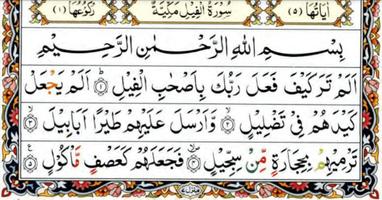 اٰيَاتُهَا (٥) سُوْرَةُ الْفِيْلِ مَكِّيَّةٌ رُكُوْعُهَا (١)
بِسْمِ اللّٰهِ الرَّحْمٰنِ الرَّحِيْمِ
اَلَمْ تَرَ كَيْفَ فَعَلَ رَبُّكَ بِاَصْحٰبِ الْفِيْلِ ۝١ اَلَمْ يَجْعَلْ
كَيْدَهُمْ فِيْ تَضْلِيْلٍ ۝٢ وَّاَرْسَلَ عَلَيْهِمْ طَيْرًا اَبَابِيْلَ ۝٣
تَرْمِيْهِمْ بِحِجَارَةٍ مِّنْ سِجِّيْلٍ ۝٤ فَجَعَلَهُمْ كَعَصْفٍ مَّاْكُوْلٍ ۝٥